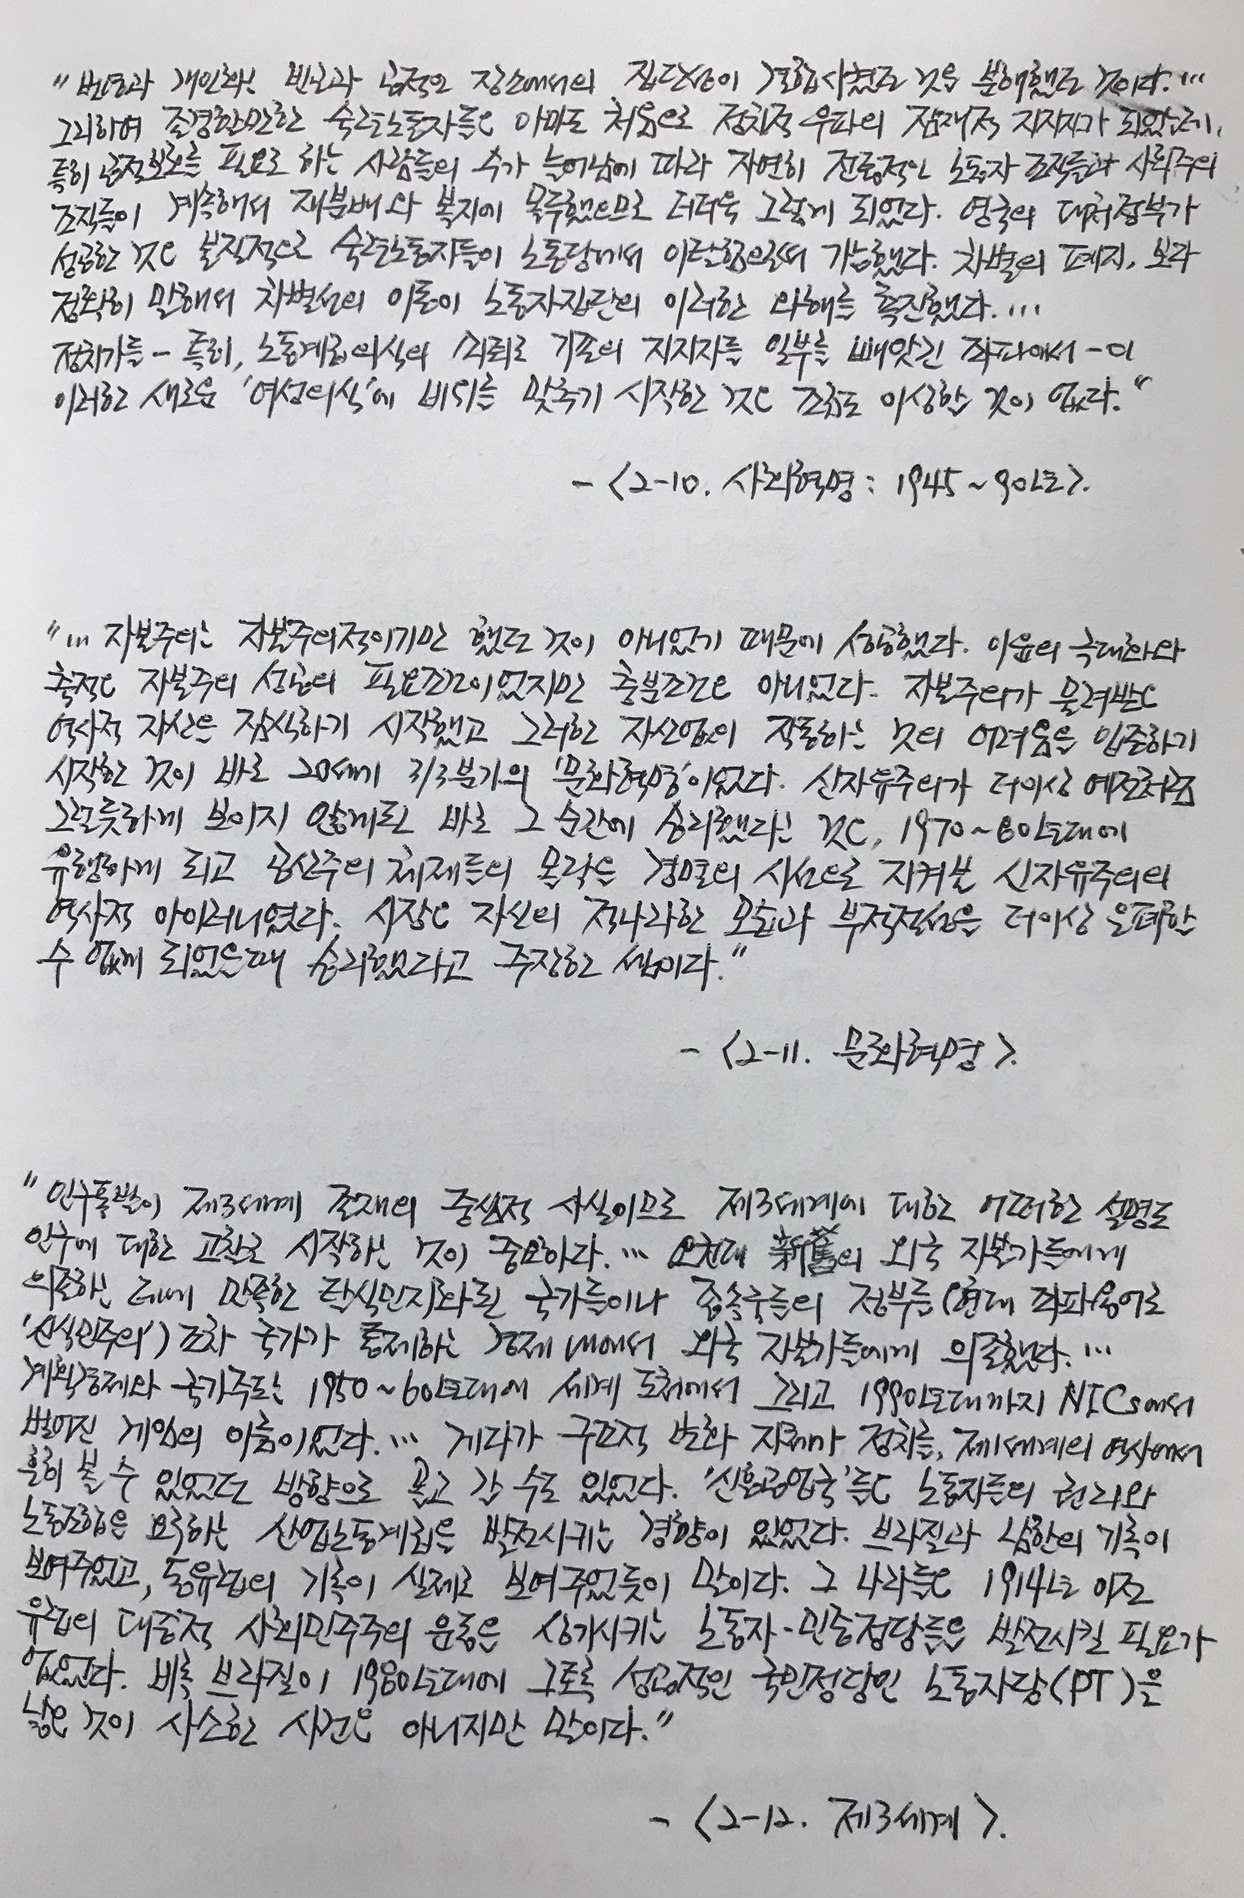 "번영과 개인화는 빈곤과 공적인 장소에서의 집단성이 결합시켰던 것을 분해했던 것이다. …
그리하여 존경할만한 숙련노동자들은 아마도 처음으로 정치적 우파의 잠재적 지지자가 되었는데,
특히 공적보호를 필요로 하는 사람들의 수가 늘어남에 따라 자연히 전통적인 노동자 조직들과 사회주의
조직들이 계속해서 재분배와 복지에 몰두했으므로 더더욱 그렇게 되었다. 영국의 대처정부가
성공한 것은 본질적으로 숙련노동자들이 노동당에서 이탈함으로써 가능했다. 차별의 폐지, 보다
정확히 말해서 차별선의 이동이 노동자집단의 이러한 와해를 촉진했다. …
정치가들 - 특히, 노동계급의식의 쇠퇴로 기존의 지지자들 일부를 빼앗긴 좌파에서 - 이
이러한 새로운 '여성의식'에 비위를 맞추기 시작한 것은 조금도 이상할 것이 없다."
- <2-10. 사회혁명 : 1945~90년>.
"… 자본주의는 자본주의적이기만 했던 것이 아니었기 때문에 성공했다. 이윤의 극대화와
축적은 자본주의 성공의 필요조건이었지만 충분조건은 아니었다. 자본주의가 물려받은
역사적 자산을 잠식하기 시작했고 그러한 자산없이 작동하는 것의 어려움을 입증하기
시작한 것이 바로 20세기 3/3분기의 '문화혁명'이었다. 신자유주의가 더이상 예전처럼
그럴듯하게 보이지 않게된 바로 그 순간에 승리했다는 것은, 1970~80년대에
유행하게 되고 공산주의 체제들의 몰락을 경멸의 시선으로 지켜본 신자유주의의
역사적 아이러니였다. 시장은 자신의 적나라한 모습과 부적절성을 더이상 은폐할
수 없게 되었을때 승리했다고 주장한 셈이다."
- <2-11. 문화혁명>.
"인구폭발이 제3세계 존재의 중심적 사실이므로 제3세계에 대한 어떠한 설명도
인구에 대한 고찰로 시작하는 것이 중요하다. … 오천대 新舊의 외국 자본가들에게
의존하는 데에 만족한 탈식민지화된 국가들이나 종속국들의 정부들(현대 좌파용어로
'신식민주의')조차 국가가 통제하는 경제 내에서 외국 자본가들에게 의존했다. …
계획경제와 국가주도는 1950~60년대에 세계 도처에서 그리고 1990년대까지 NICs에서
벌어진 게임의 이름이었다. … 게다가 구조적 변화 자체가 정치를, 제1세계의 역사에서
흔히 볼 수 있었던 방향으로 몰고 갈 수도 있었다. '신흥공업국'들은 노동자들의 권리와
노동조합을 요구하는 산업노동계급을 발전시키는 경향이 있었다. 브라질과 남한의 기록이
보여주었고, 동유럽의 기록이 실제로 보여주었듯이 말이다. 그 나라들은 1914년 이전
유럽의 대중적 사회민주주의 운동을 상기시키는 노동자-민중정당들을 발전시킬 필요가
없었다. 비록 브라질이 1980년대에 그토록 성공적인 국민정당인 노동자당(PT)을
낳은 것이 사소한 사건은 아니지만 말이다."
- <2-12. 제3세계>.